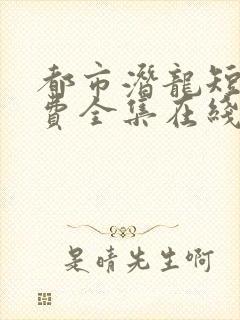 都市潛龍短
費全集在綫
是晴先生啊